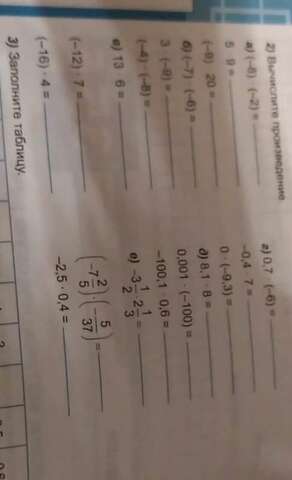 2) Вычислите произведение.
а) (–8) · (–2) =
5 · 9 =
(–9) · 20 =
б) (–7) · (–6) =
3 · (–9) =
(–4) · (–8) =
в) 13 · 6 =
(–12) · 7 =
(–16) · 4 =
г) 0,7 · (–6) =
–0,4 · 7 =
0 · (–9,3) =
д) 8,1 · 8 =
0,001 · (–100) =
–100,1 · 0,6 =
е) –3 1/2 · 2 1/3 =
(–7 2/5) · (–5/37) =
–2,5 · 0,4 =
3) Заполните таблицу.